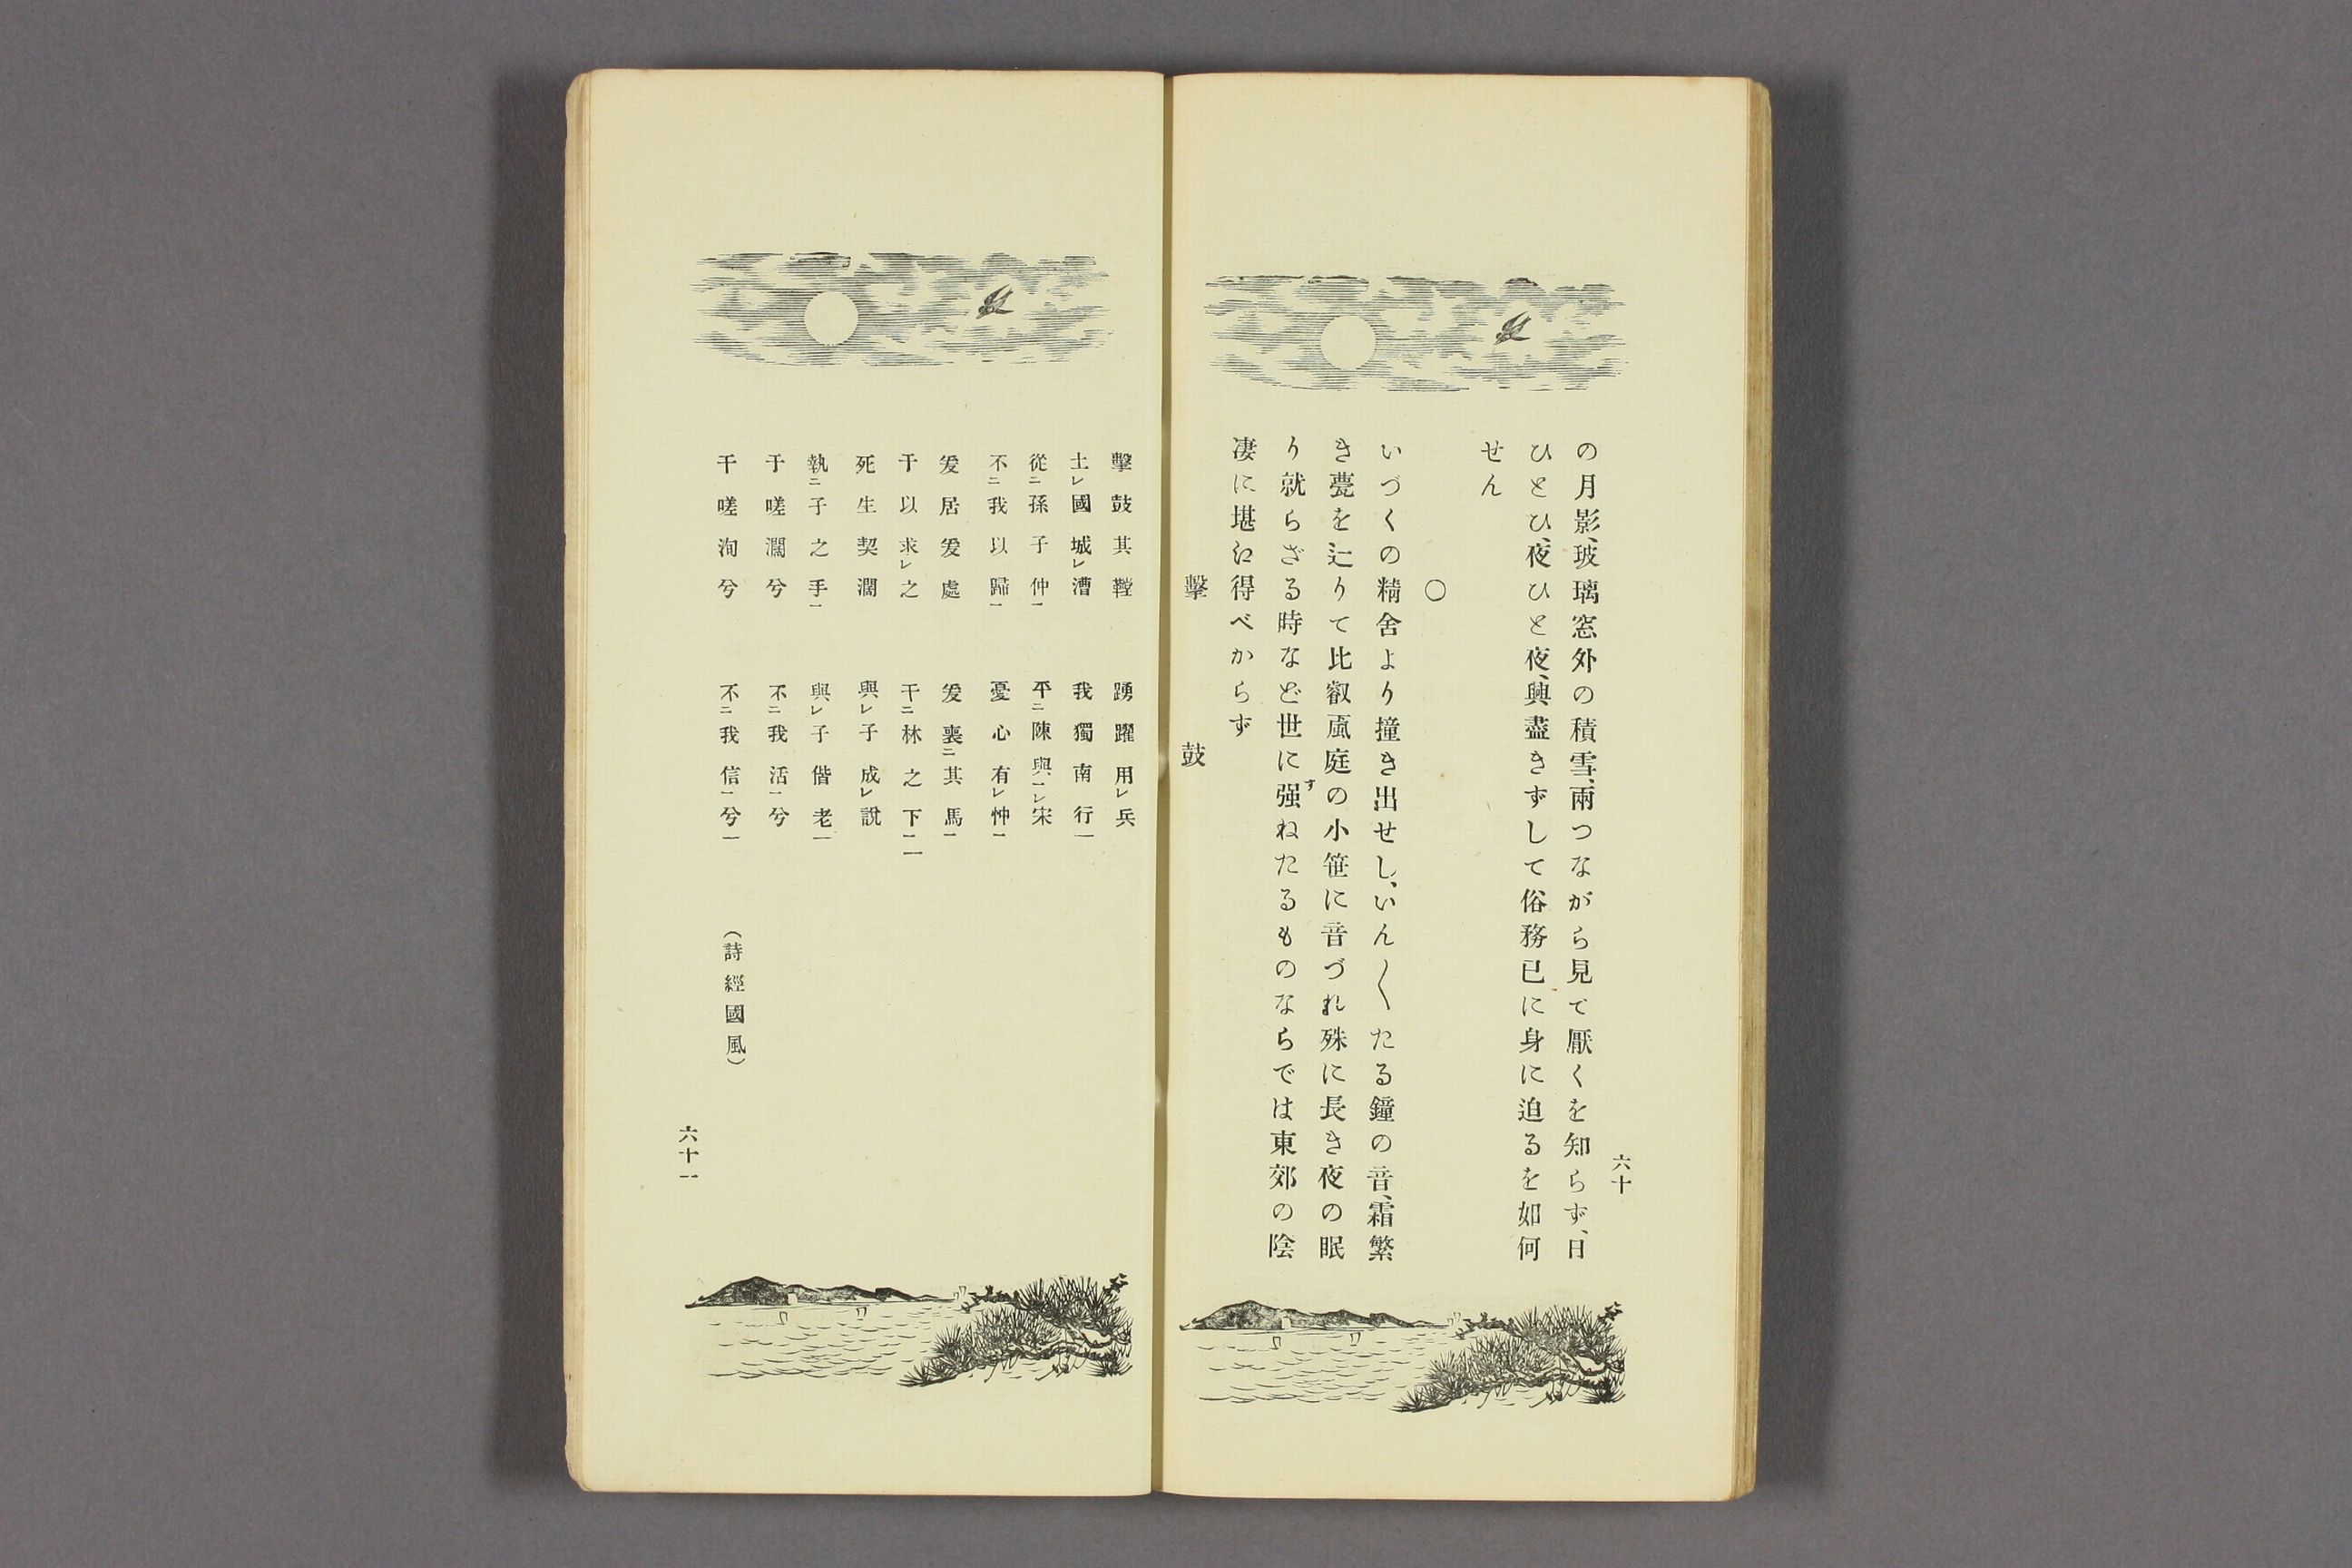 六十
の月影、玻璃窓外の積雪、兩つながら見て厭くを知らず、日
ひとひ、夜ひと夜、興盡きずして俗務已に身に迫るを如何
せん
○
いづくの精舍より撞き出せし、いん〱たる鐘の音、霜繁
き甍を辷りて比叡颪庭の小笹に音づれ殊に長き夜の眠
り就らざる時など世に强すねたるものならでは東郊の陰
凄に堪え得べからず
擊　鼓
擊鼓其鞺　踴躍用レ兵
土レ國城レ漕　我獨南行一
從二孫子仲一　平二陳與一レ宋
不二我以歸一　憂心有レ忡一
爰居爰處　爰喪二其馬一
于以求レ之　于二林之下一一
死生契濶　與レ子成レ說
執二子之手一　與レ子偕老一
于嗟濶兮　不二我活一兮
于嗟洵兮　不二我信一兮一
（詩經國風）
六十一